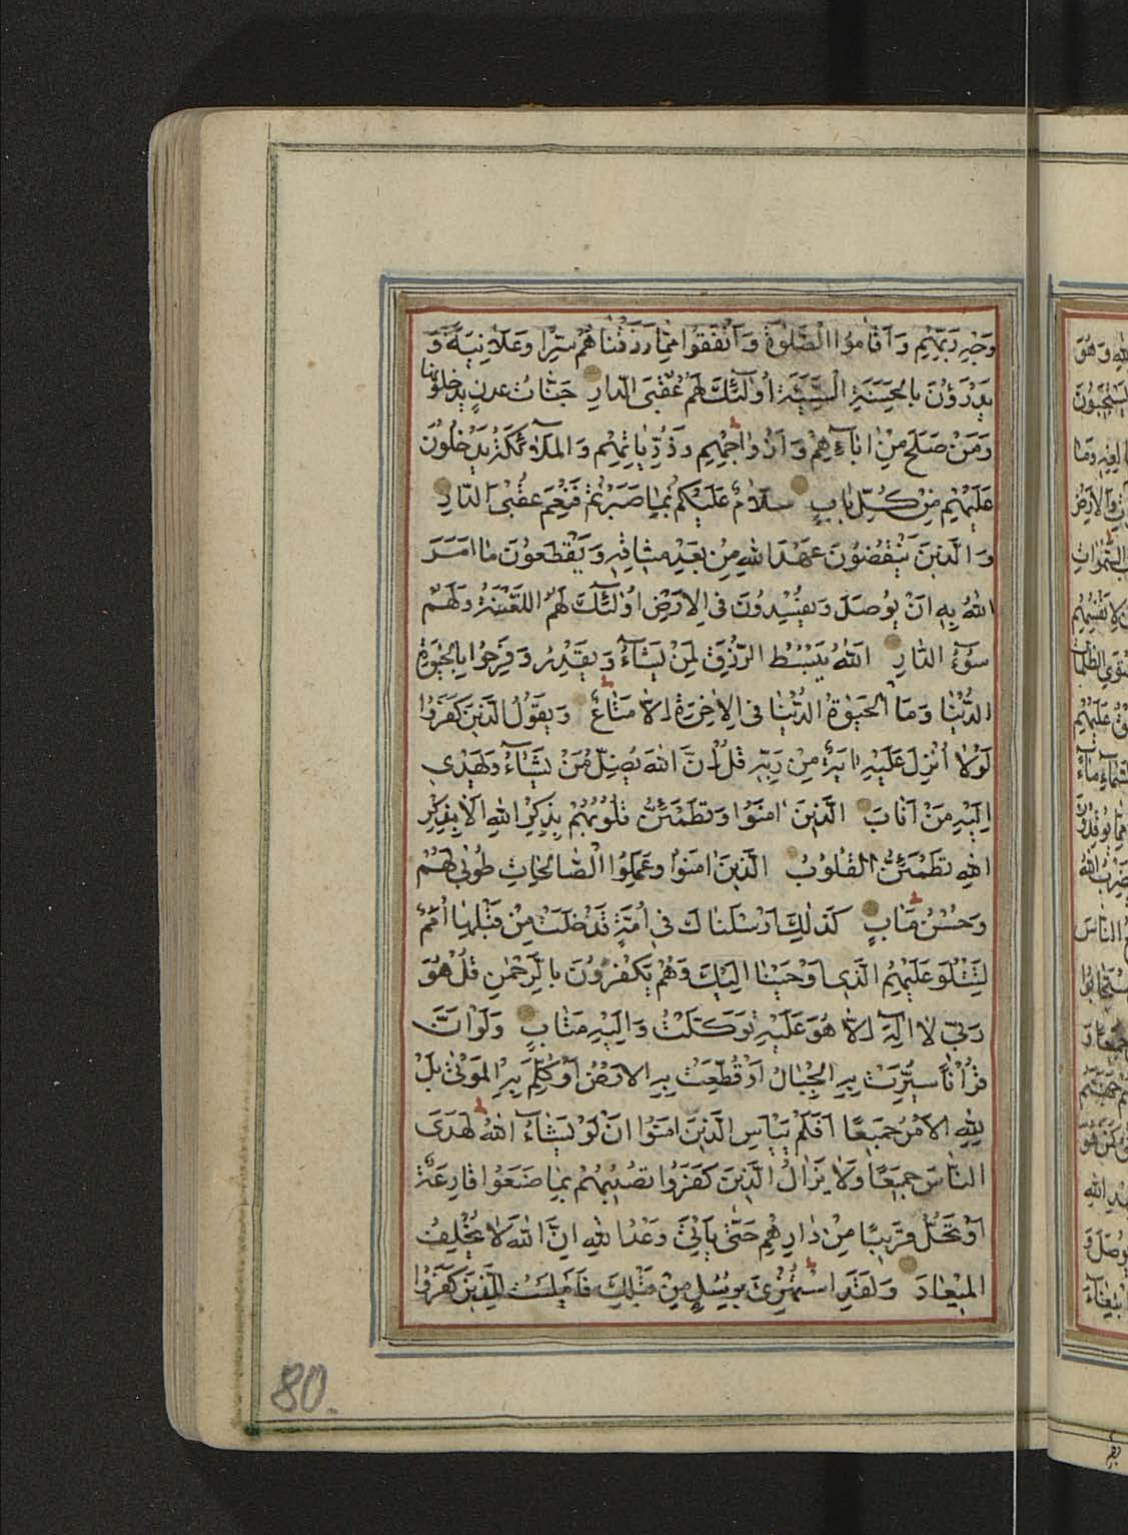 وَجْهِ رَبِّهِمْ وَ اَقَامُوا الصَّلٰوةَ وَ اَنْفَقُوا مِمَّا رَزَقْنَاهُمْ سِرًّا وَعَلَانِيَةً وَ
يَدْرَؤُنَ بِالْحَسَنَةِ السَّيِّئَةَ اُولٰٓئِكَ لَهُمْ عُقْبَى الدَّارِ جَنَّاتُ عَدْنٍ يَدْخُلُونَها
وَ مَنْ صَلَحَ مِنْ اٰبَآءِهِمْ وَ اَزْوٰاجِهِمْ وَ ذُرِّيَاتِهِمْ وَ الْمَلَآئِكَةُ يَدْخُلُونَ
عَلَيْهِمْ مِنْ كُلِّ بَابٍ سَلَامٌ عَلَيْكُمْ بِمَا صَبَرْتُمْ فَنِعْمَ عُقْبَى الدَّارِ
وَ الَّذِينَ يَنْقُضُونَ عَهْدَ اللّٰهِ مِنْ بَعْدِ مِيثَاقِهِ وَ يَقْطَعُونَ مَا اَمَرَ
اللّٰهُ بِهِ اَنْ يُوصَلَ وَ يُفْسِدُونَ فِى الْاَرْضِ اُولٰٓئِكَ لَهُمُ اللَّعْنَةُ وَ لَهُمْ
سُوٓءُ الدَّارِ اَللّٰهُ يَبْسُطُ الرِّزْقَ لِمَنْ يَشَآءُ وَ يَقْدِرُ وَ فَرِحُوا بِالْحَيٰوةِ
الدُّنْيَا وَ مَا الْحَيٰوةُ الدُّنْيَا فِى الْاٰخِرَةِ اِلَّا مَتَاعٌ وَ يَقُولُ الَّذِينَ كَفَرُوا
لَوْلَا اُنْزِلَ عَلَيْهِ اٰيَةٌ مِنْ رَبِّهِ قُلْ اِنَّ اللّٰهَ يُضِلُّ مَنْ يَشَآءُ وَ يَهْدِى
اِلَيْهِ مَنْ اَنَابَ الَّذِينَ اٰمَنُوا وَ تَطْمَئِنُّ قُلُوبُهُمْ بِذِكْرِ اللّٰهِ اَلَا بِذِكْرِ
اللّٰهِ تَطْمَئِنُّ الْقُلُوبُ الَّذِينَ اٰمَنُوا وَ عَمِلُوا الصَّالِحَاتِ طُوبٰى لَهُمْ
وَ حُسْنُ مَاٰبٍ كَذٰلِكَ اَرْسَلْنَاكَ فِى اُمَّةٍ قَدْ خَلَتْ مِنْ قَبْلِهَا اُمَمٌ
لِتَتْلُوَ عَلَيْهِمُ الَّذِى اَوْحَيْنَا اِلَيْكَ وَ هُمْ يَكْفُرُونَ بِالرَّحْمٰنِ قُلْ هُوَ
رَبِّى لَا اِلٰهَ اِلَّا هُوَ عَلَيْهِ تَوَكَّلْتُ وَ اِلَيْهِ مَتَابِ وَ لَوْ اَنَّ
قُرْاٰنًا سُيِّرَتْ بِهِ الْجِبَالُ اَوْ قُطِّعَتْ بِهِ الْاَرْضُ اَوْ كُلِّمَ بِهِ الْمَوْتٰى بَلْ
لِلّٰهِ الْاَمْرُ جَمِيعًا اَفَلَمْ يَيْاَسِ الَّذِينَ اٰمَنُوا اَنْ لَوْ يَشَآءُ اللّٰهُ لَهَدَى
النَّاسَ جَمِيعًا وَ لَا يَزَالُ الَّذِينَ كَفَرُوا تُصِيبُهُمْ بِمَا صَنَعُوا قَارِعَةٌ
اَوْ تَحُلُّ قَرِيبًا مِنْ دَارِهِمْ حَتّٰى يَاْتِىَ وَعْدُ اللّٰهِ اِنَّ اللّٰهَ لَا يُخْلِفُ
الْمِيْعَادَ وَ لَقَدِ اسْتُهْزِئَ بِرُسُلٍ مِنْ قَبْلِكَ فَاَمْلَيْتُ لِلَّذِينَ كَفَرُوا
80.